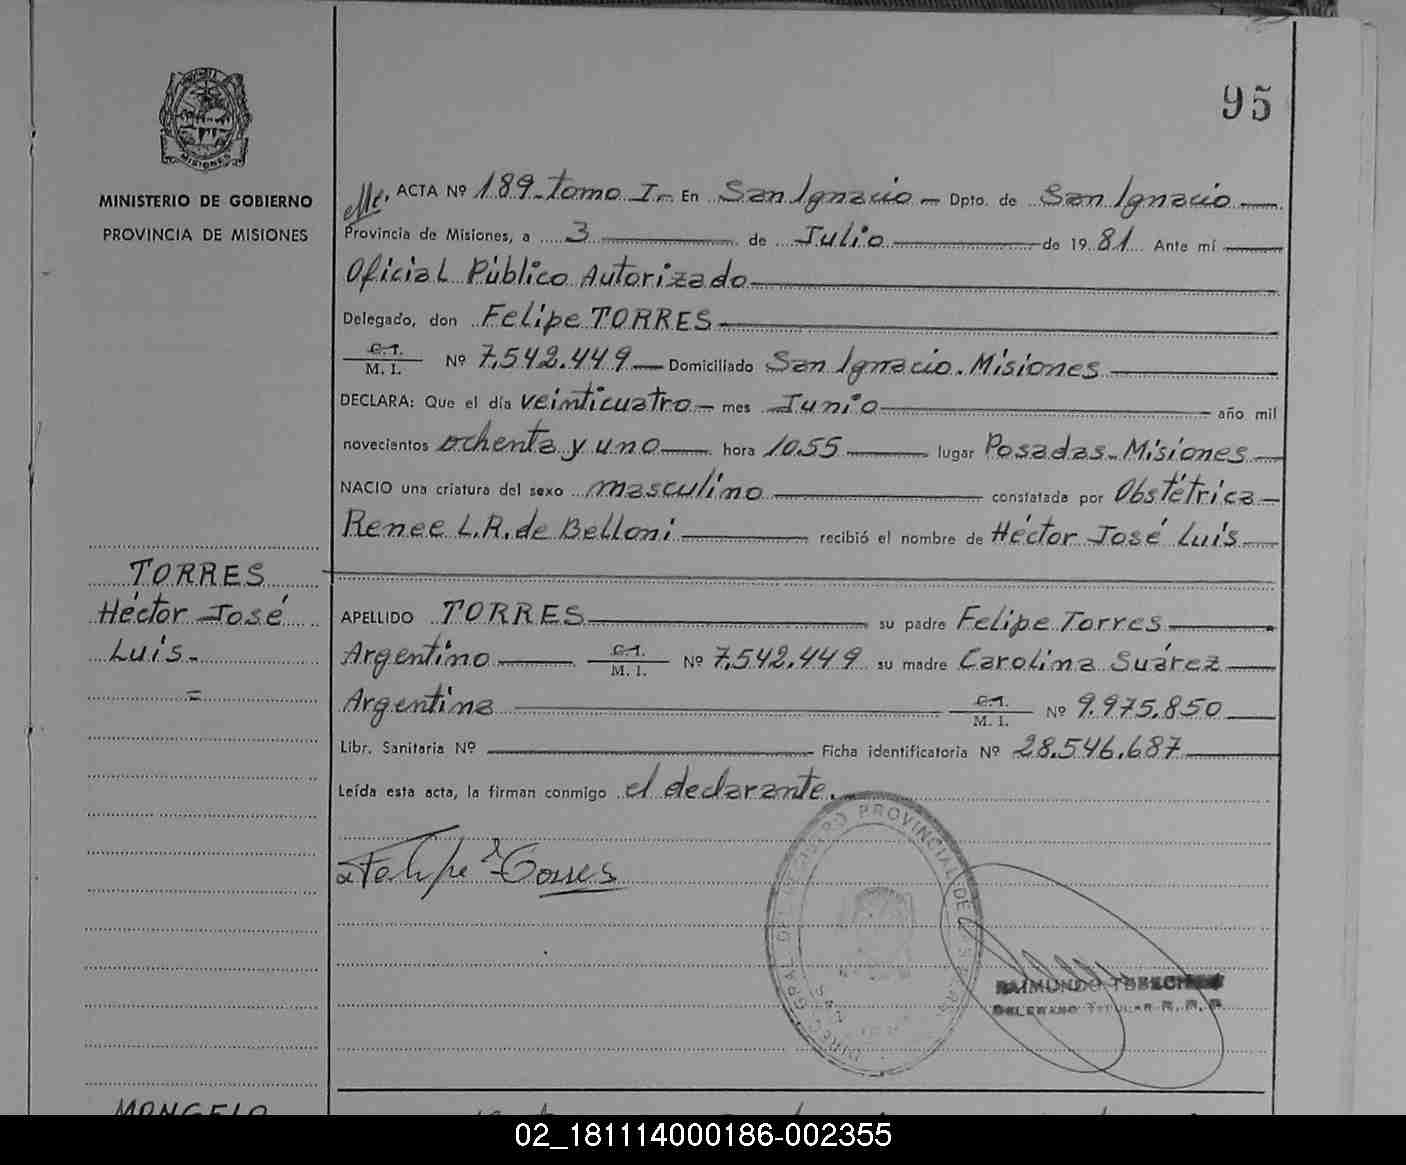 95
MISIONES
MINISTERIO DE GOBIERNO
PROVINCIA DE MISIONES
ACTA Nº 189-tomo I- En San Ignacio - Dpto. de San Ignacio
Provincia de Misiones, a 3 de Julio de 19 81 Ante mí
Oficial Público Autorizado
Delegado, don Felipe TORRES
C.I.
M. I. Nº 7.542.449 Domiciliado San Ignacio. Misiones
DECLARA: Que el día veinticuatro mes Junio año mil
novecientos ochenta y uno hora 10.55 lugar Posadas-Misiones
NACIO una criatura del sexo masculino constatada por Obstétrica
Renee L.R. de Belloni recibió el nombre de Héctor José Luis
TORRES
Héctor José
Luis.-
=
APELLIDO TORRES su padre Felipe Torres
Argentino C.I. M. I. Nº 7.542.449 su madre Carolina Suárez
Argentina C.I. M. I. Nº 9.975.850
Libr. Sanitaria Nº Ficha identificatoria Nº 28.546.687
Leída esta acta, la firman conmigo el declarante.
Felipe Torres
PROVINCIAL DE LAS
RAIMUNDO
DELEGADO TITULAR R. P. P.
02_181114000186-002355